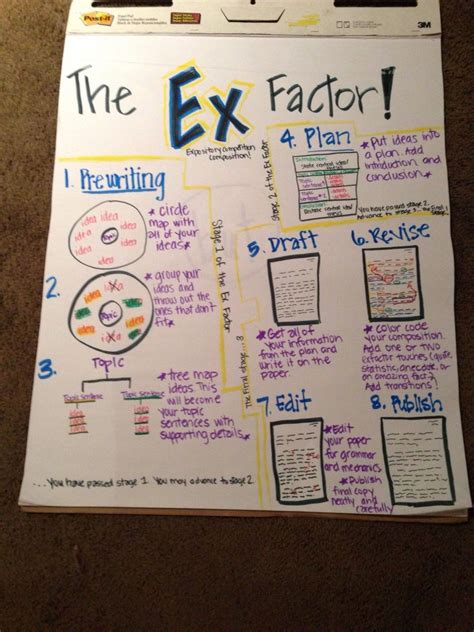 Post-it
3M
The Ex Factor!
Expository competition
composition!
1. Prewriting
idea idea
idea
idea
idea
Topic
idea
idea
idea
* circle
map with
all of your
ideas
2.
idea
idea
Topic
idea
* group your
ideas and
throw out the
ones that don't
fit
3.
Topic
Topic Sentence
Topic Sentence
idea
idea
idea
idea
* tree map
ideas. This
will become
your topic
sentences with
supporting details
...you have passed stage 1. You may advance to stage 2.
Stage 1 of the Ex Factor
Stage 2 of the Ex Factor
4. Plan
Introduction
* Put ideas into
a plan. Add
introduction and
conclusion
You have passed stage 2.
Advance to stage 3...the final stage
The Final stage...3
5. Draft
* Get all of
your information
from the plan and
write it on the
paper.
6. Revise
* color code
your composition.
Add one or two
extractor touches (quote,
statistic, anecdote, or
an amazing fact).
Add transitions!
7. Edit
* Edit
your paper
for grammar
and mechanics
8. Publish
* Publish
final copy
neatly and
carefully